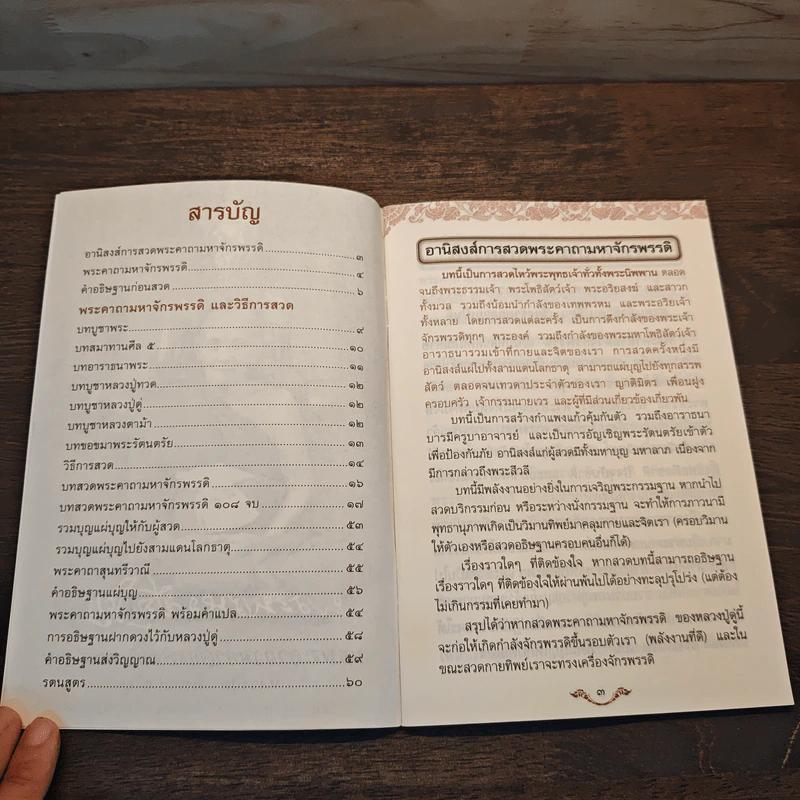 สารบัญ
อานิสงส์การสวดพระคาถามหาจักรพรรดิ ๓
พระคาถามหาจักรพรรดิ ๔
คำอธิษฐานก่อนสวด ๖
พระคาถามหาจักรพรรดิ และวิธีการสวด
บทบูชาพระ ๙
บทสมาทานศีล ๕ ๑๐
บทอาราธนาพระ ๑๑
บทบูชาหลวงปู่ทวด ๑๒
บทบูชาหลวงปู่ดู่ ๑๒
บทบูชาหลวงตาม้า ๑๒
บทขอขมาพระรัตนตรัย ๑๓
วิธีการสวด ๑๔
บทสวดพระคาถามหาจักรพรรดิ ๑๖
บทสวดพระคาถามหาจักรพรรดิ ๑๐๘ จบ ๑๗
รวมบุญแผ่บุญให้กับผู้สวด ๕๓
รวมบุญแผ่บุญไปยังสามแดนโลกธาตุ ๕๔
พระคาถาสุนทรีวาณี ๕๕
คำอธิษฐานแผ่บุญ ๕๖
พระคาถามหาจักรพรรดิ พร้อมคำแปล ๕๔
การอธิษฐานฝากดวงไว้กับหลวงปู่ดู่ ๕๘
คำอธิษฐานส่งวิญญาณ ๕๙
รตนสูตร ๖๐
อานิสงส์การสวดพระคาถามหาจักรพรรดิ
บทนี้เป็นการสวดไหว้พระพุทธเจ้าทั่วทั้งพระนิพพาน ตลอด
จนถึงพระธรรมเจ้า พระโพธิสัตว์เจ้า พระอริยสงฆ์ และสาวก
ทั้งมวล รวมถึงน้อมนำกำลังของเทพพรหม และพระอริยเจ้า
ทั้งหลาย โดยการสวดแต่ละครั้ง เป็นการดึงกำลังของพระเจ้า
จักรพรรดิทุกๆ พระองค์ รวมถึงกำลังของพระมหาโพธิสัตว์เจ้า
อาราธนารวมเข้าที่กายและจิตของเรา การสวดครั้งหนึ่งมี
อานิสงส์แผ่ไปทั้งสามแดนโลกธาตุ สามารถแผ่บุญไปยังทุกสรรพ
สัตว์ ตลอดจนเทวดาประจำตัวของเรา ญาติมิตร เพื่อนฝูง
ครอบครัว เจ้ากรรมนายเวร และผู้ที่มีส่วนเกี่ยวข้องเกี่ยวพัน
บทนี้เป็นการสร้างกำแพงแก้วคุ้มกันตัว รวมถึงอาราธนา
บารมีครูบาอาจารย์ และเป็นการอัญเชิญพระรัตนตรัยเข้าตัว
เพื่อป้องกันภัย อานิสงส์แก่ผู้สวดมีทั้งมหาบุญ มหาลาภ เนื่องจาก
มีการกล่าวถึงพระสีวลี
บทนี้มีพลังงานอย่างยิ่งในการเจริญพระกรรมฐาน หากนำไป
สวดบริกรรมก่อน หรือระหว่างนั่งกรรมฐาน จะทำให้การภาวนามี
พุทธานุภาพเกิดเป็นวิมานทิพย์มาคลุมกายและจิตเรา (ครอบวิมาน
ให้ตัวเองหรือสวดอธิษฐานครอบคนอื่นก็ได้)
เรื่องราวใดๆ ที่ติดข้องใจ หากสวดบทนี้สามารถอธิษฐาน
เรื่องราวใดๆ ที่ติดข้องใจให้ผ่านพ้นไปได้อย่างทะลุปรุโปร่ง (แต่ต้อง
ไม่เกินกรรมที่เคยทำมา)
สรุปได้ว่าหากสวดพระคาถามหาจักรพรรดิ ของหลวงปู่ดู่นี้
จะก่อให้เกิดกำลังจักรพรรดิขึ้นรอบตัวเรา (พลังงานที่ดี) และใน
ขณะสวดกายทิพย์เราจะทรงเครื่องจักรพรรดิ
๓